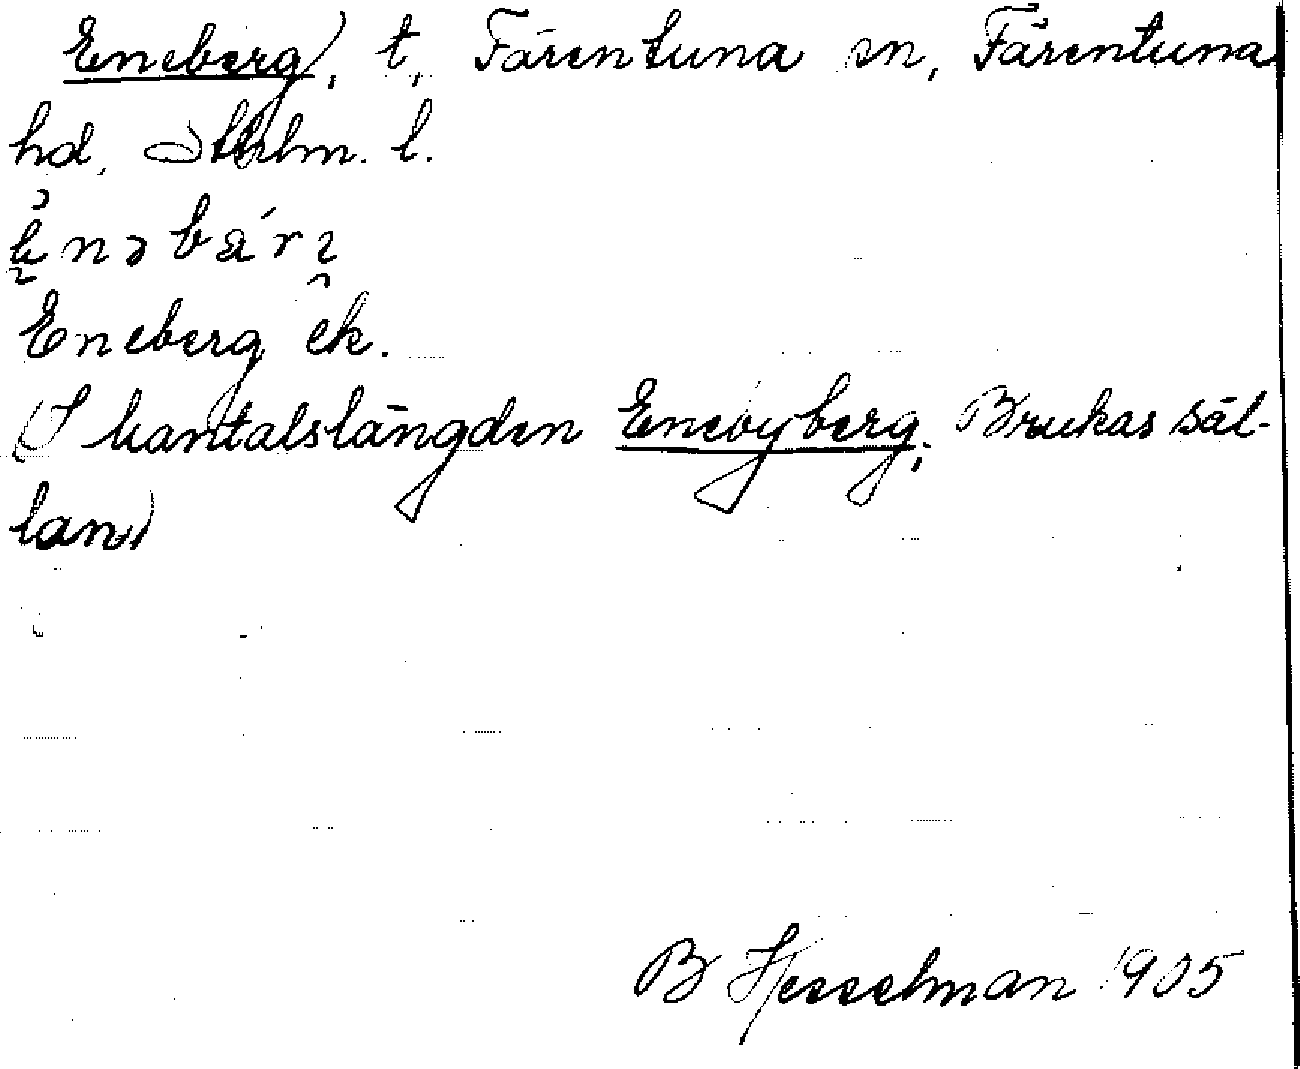 Eneberg, t, Färentuna sn, Färentuna
hd, Sthlm. l.
Eneberg ek.
(I mantalslängden Enebyberg, Brukas säl-
lan)
B Hesselman 1905